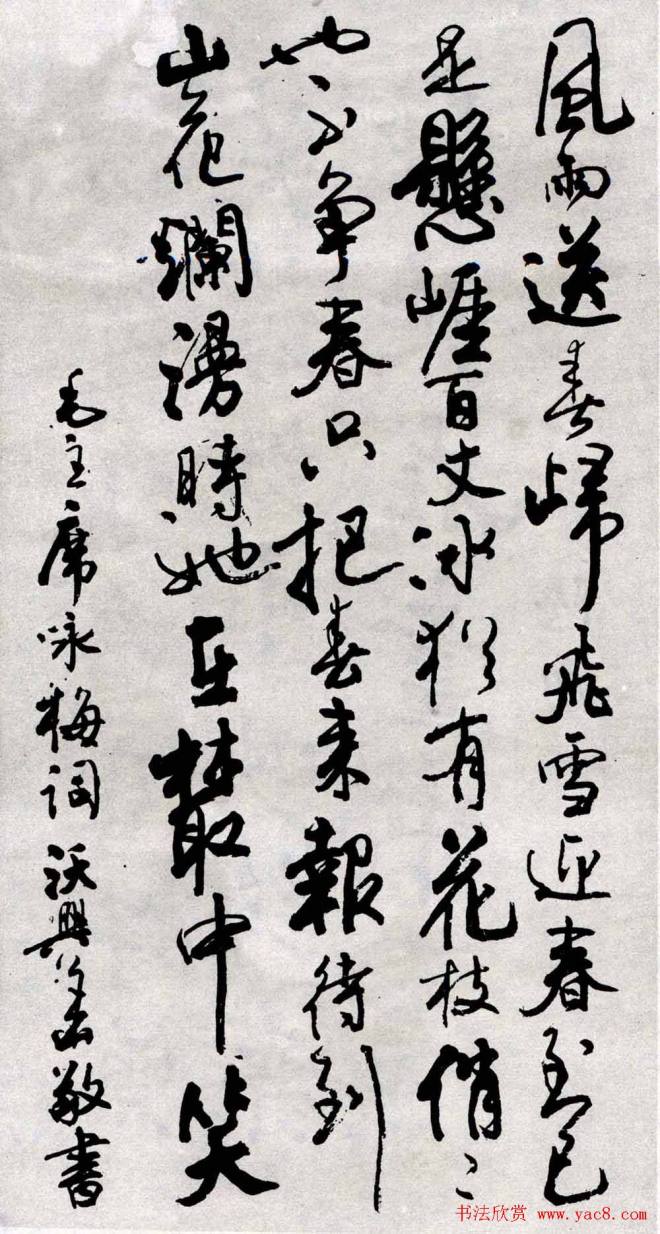 風雨送春歸飛雪迎春到已
是懸崖百丈冰猶有花枝俏〻
也不争春只把春來報待到
山花爛漫時她在叢中笑
毛主席咏梅詞 沃興華敬書
书法欣赏 www.yac8.com